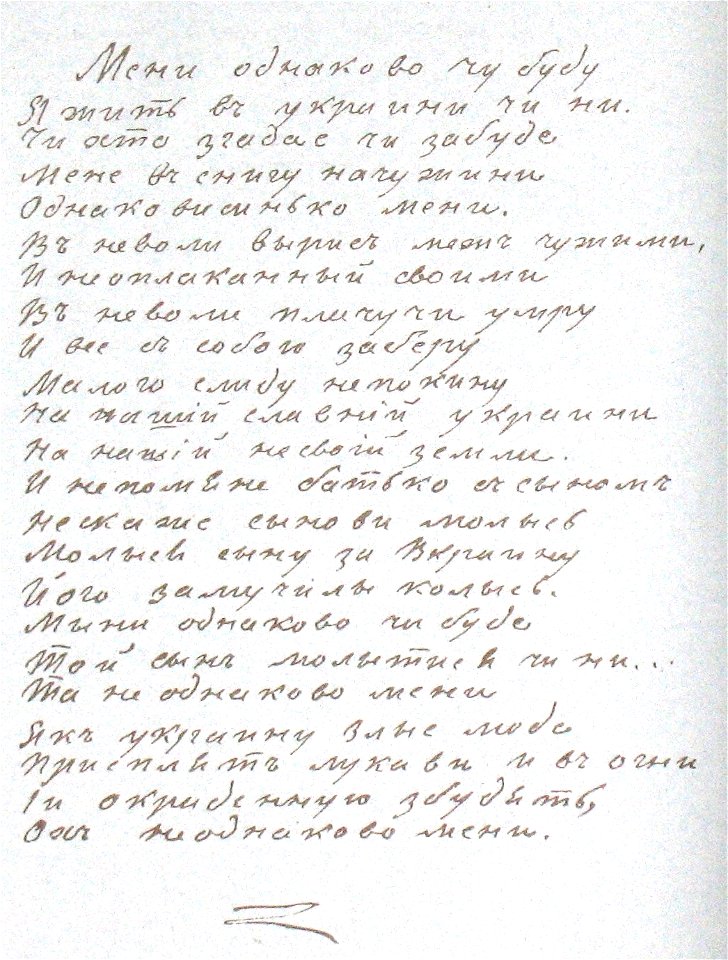 Мени однаково чу буду
Я жить въ украини чи ни.
Чи хто згадае чи забуде
Мене въ снигу начужини
Однаковисинько мени.
Въ неволи вырисъ межъ чужими,
И неоплаканный своими
Въ неволи плачучи умру
И все съ собою заберу
Малого слиду непокину
На нашій славній украини
На нашій несвоій земли.
И непомѣне батько съ сыномъ
Нескаже сынови молысь
Молысь сыну за Вкраину
Його замучилы колысь.
Мыни однаково чи буде
Той сынъ молытись чи ни...
Та не однаково мени
Якъ украину злые люде
Присплять лукави и въ огни
Іи окраденную збудѣть,
Охъ неоднаково мени.